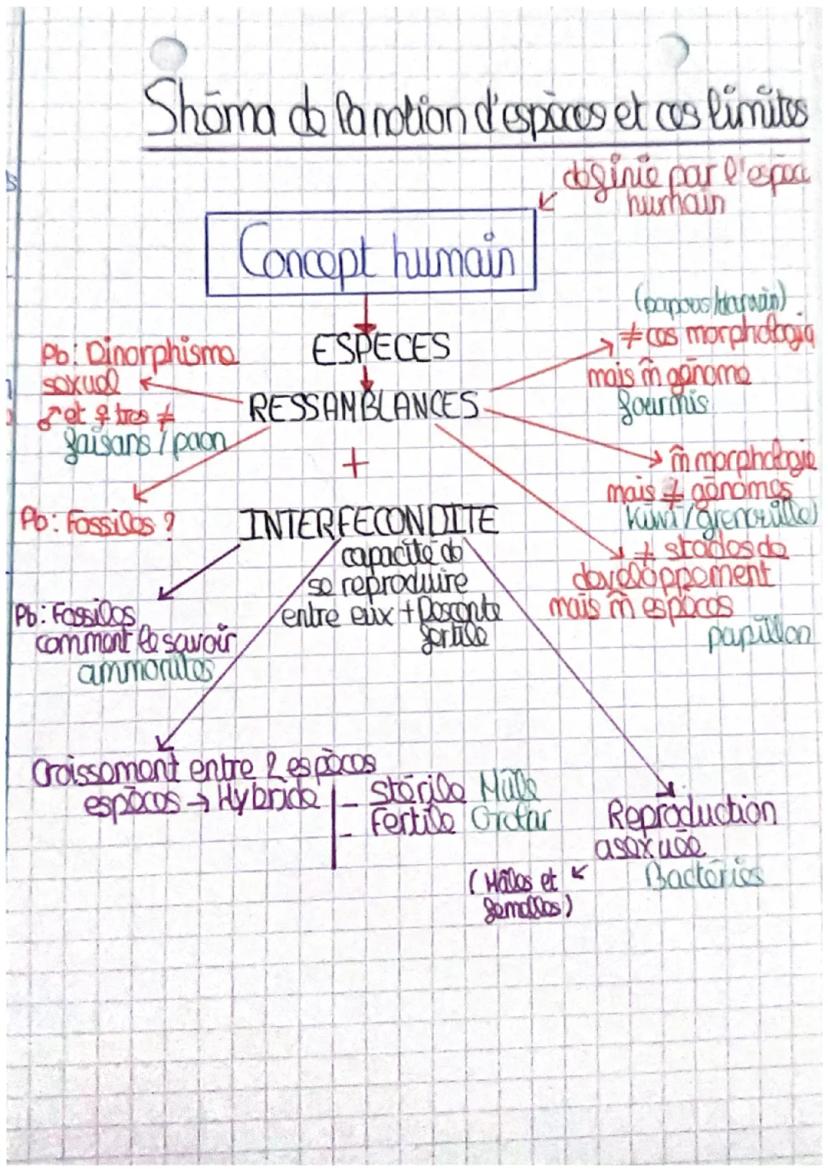 Shéma de la notion d'espèces et ces limites
définie par l'espèce
humain
Concept humain
ESPECES
RESSAMBLANCES
+
INTERFECONDITE
capacité de
se reproduire
entre eux + Descente
fertile
Pb: Dimorphisme
sexuel
♂ et ♀ tres ≠
faisans / paon
Pb: Fossiles ?
(papous/darwin)
≠ces morphologie
mais m̄ génome
fourmis
m̄ morphologie
mais ≠ génomes
kiwi/grenouille)
≠ stades de
developpement
mais m̄ espèces
papillon
Pb: Fossiles
comment le savoir
ammonites
Croissement entre 2 espèces
espèces → Hybride
- Stérile Mûle
- Fertile Grolar
(Mâles et
femelles)
Reproduction
asexuée
Bactéries